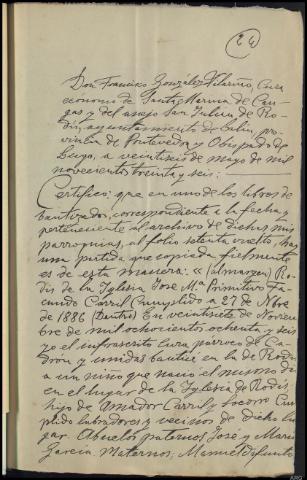 (24)
Don Francisco González Vilariño, Cura
economo de Santa Marina de Can-
gas y del anejo San Julian de Ro-
dis, ayuntamiento de Lalin, pro-
vincia de Pontevedra y Obispado de
Lugo, a veintiseis de mayo de mil
novecientos treinta y seis:
Certifico: que en uno de los libros de
bautizados, correspondiente a la fecha y
perteneciente al archivo de dichas mis
parroquias, al folio setenta vuelto, hay
una partida que copiada fielmente
es de esta manera: « (al margen) Ro-
dis de la Iglesia José Mª Primitivo Fa-
cundo Carril Cumplido a 27 de Nbre
de 1886 (Dentro) En veintisiete de Noviem-
bre de mil ochocientos ochenta y seis
yo el infrascrito Cura párroco de Ca-
drón y unidas bauticé en la de Rodis
a un niño que nació el mismo dia
en el lugar de la Iglesia de Rodis,
hijo de Amador Carril y Socorro Cum-
plido labradores y vecinos de dicho lu-
gar Abuelos paternos José y María
García Maternos, Manuel difunto